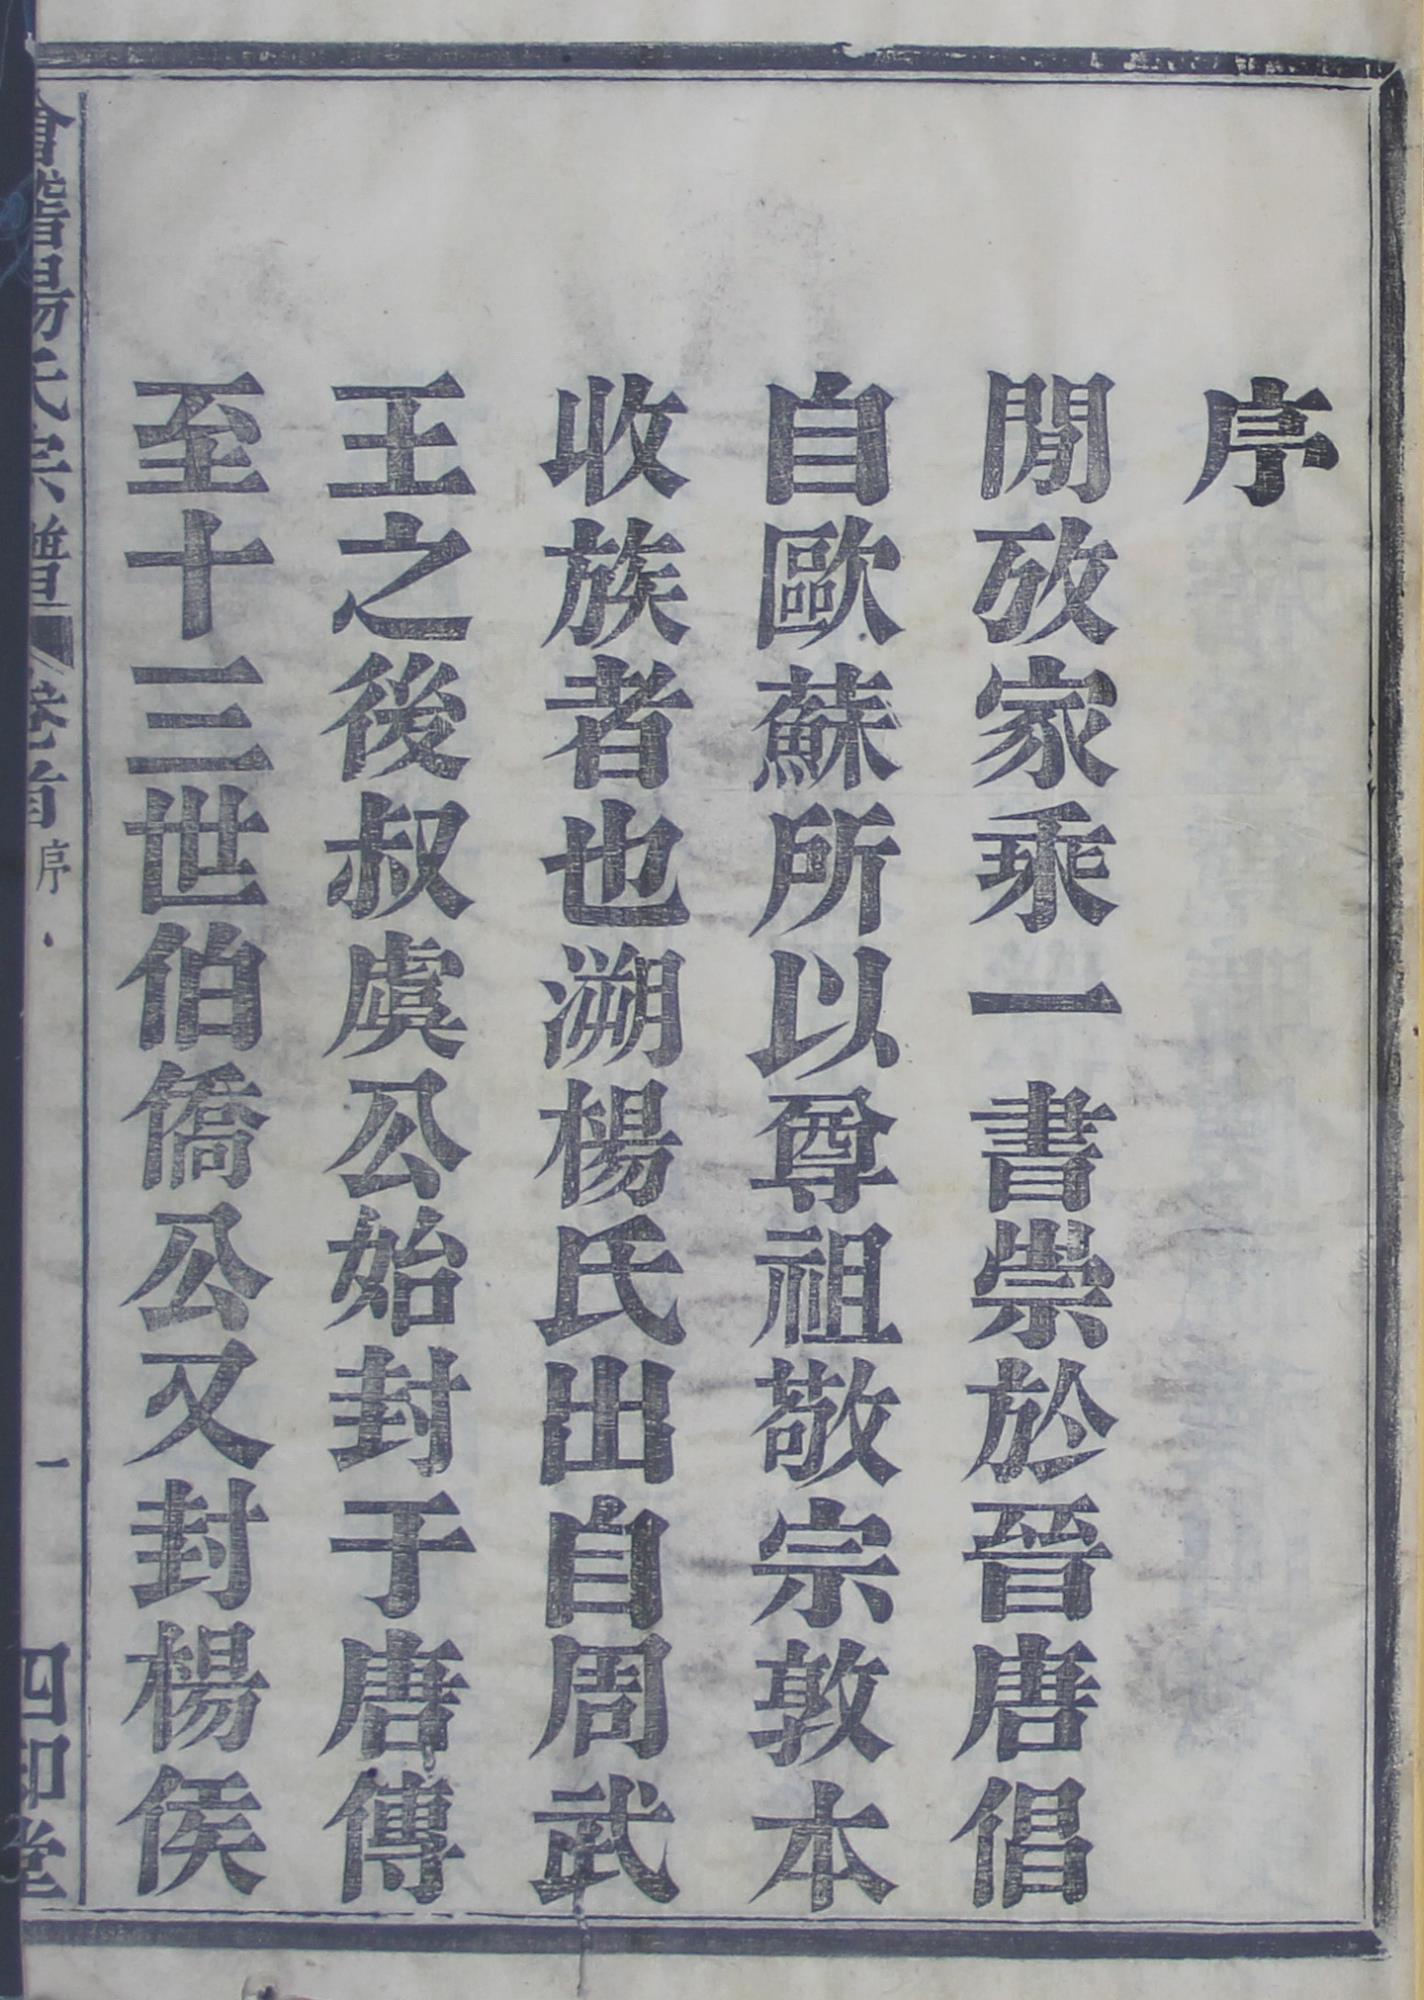 序
閒攷家乘一書崇於晉唐倡
自歐蘇所以尊祖敬宗敦本
收族者也溯楊氏出自周武
王之後叔虞公始封于唐傳
至十三世伯僑公又封楊侯
會稽楊氏宗譜 卷首 序 一 四知堂